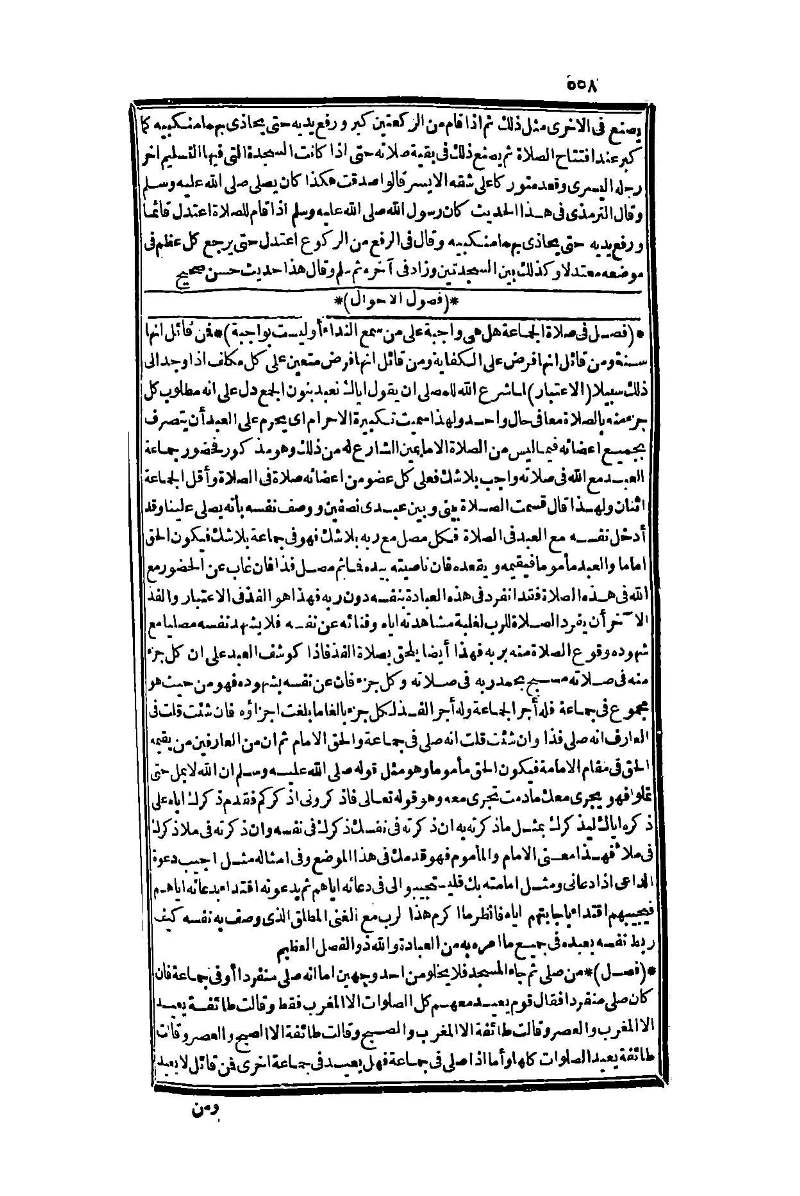 ٥٥٨
يصنع فى الاخرى مثل ذلك ثم اذا قام من الركعتين كبر ورفع يديه حتى يحاذى بهما منكبيه كما
كبر عند افتتاح الصلاة ثم يصنع ذلك فى بقية صلاته حتى اذا كانت السجدة التى فيها التسليم اخر
رجله اليسرى وقعد متوركا على شقه الايسر قالوا صدقت هكذا كان يصلى صلى الله عليه وسلم
وقال الترمذى فى هذا الحديث كان رسول الله صلى الله عليه وسلم اذا قام للصلاة اعتدل قائما
ورفع يديه حتى يحاذى بهما منكبيه وقال فى الرفع من الركوع اعتدل حتى يرجع كل عظم فى
موضعه معتدلا وكذلك بين السجدتين وزاد فى آخره ثم سلم وقال هذا حديث حسن صحيح
*(فصول الاحوال)*
*(فصل فى صلاة الجماعة هل هى واجبة على من سمع النداء أو ليست بواجبة)* فمن قائل انها
سنة ومن قائل انها فرض على الكفاية ومن قائل انها فرض متعين على كل مكلف اذا وجد الى
ذلك سبيلا (الاعتبار) لما شرع الله للمصلى ان يقول اياك نعبد بنون الجمع دل على انه مطلوب كل
جزء منه بالصلاة معا فى حال واحد ولهذا سميت تكبيرة الاحرام اى يحرم على العبد أن يتصرف
بجميع اعضائه فيما ليس من الصلاة الاما عين الشارع له من ذلك وهو مذكور فحضور جماعة
العبد مع الله فى صلاته واجب بلاشك فعلى كل عضو من اعضائه صلاة فى الصلاة وأقل الجماعة
اثنان ولهذا قال قسمت الصلاة بينى وبين عبدى نصفين ووصف نفسه بأنه يصلى علينا وقد
أدخل نفسه مع العبد فى الصلاة فكل مصل مع ربه بلاشك فهو فى جماعة بلاشك فيكون الحق
اماما والعبد مأموما فيقيمه ويقعده فان ناصيته بيده فما ثم مصل فذا فان غاب عن الحضور مع
الله فى هذه الصلاة فقد انفرد فى هذه العبادة بنفسه دون ربه فهذا هو الفذ فى الاعتبار والفذ
الآخر أن يفرد الصلاة للرب لغلبة مشاهدته اياه وفنائه عن نفسه فلا يشهد نفسه مصليا مع
شهوده وقوع الصلاة منه بربه فهذا أيضا يلحق بصلاة الفذ فاذا كوشف العبد على ان كل جزء
منه فى صلاته مسبح بحمد ربه فى صلاته وكل جزء فان عن نفسه بشهوده فهو من حيث هو
مجموع فى جماعة فله أجر الجماعة وله أجر الفذ لكل جزء بالغا ما بلغت اجزاؤه فان شئت قلت فى
العارف انه صلى فذا وان شئت قلت انه صلى فى جماعة والحق الامام ثم ان من العارفين من يقيمه
الحق فى مقام الامامة فيكون الحق مأموما وهو مثل قوله صلى الله عليه وسلم ان الله لا يمل حتى
تملوا فهو يجرى معك ما دمت تجرى معه وهو قوله تعالى فاذكرونى اذكركم فقدم ذكرك اياه على
ذكره اياك ليذكرك بمثل ما ذكرته به ان ذكرته فى نفسك ذكرك فى نفسه وان ذكرته فى ملا ذكرك
فى ملأ فهذا معنى الامام والمأموم فهو قدمك فى هذا الموضع وفى امثاله مثل اجيب دعوة
الداعى اذا دعانى ومثل امامته بك فليستجيبوا لى فى دعائه اياهم ثم يدعونه اقتداء بدعائه اياهم
فيجيبهم اقتداء باجابتهم اياه فانظر ما اكرم هذا الرب مع الغنى المطلق الذى وصف به نفسه كيف
ربط نفسه بعبده فى جميع ما امره به من العبادة والله ذو الفضل العظيم
*(فصل)* من صلى ثم جاء المسجد فلا يخلو من احد وجهين اما انه صلى منفردا أو فى جماعة فان
كان صلى منفردا فقال قوم يعيد معهم كل الصلوات الا المغرب فقط وقالت طائفة يعيد
الا المغرب والعصر وقالت طائفة الا المغرب والصبح وقالت طائفة الا الصبح والعصر وقالت
طائفة يعيد الصلوات كلها وأما اذا صلى فى جماعة فهل يعيد فى جماعة اخرى فمن قائل لا يعيد
ومن